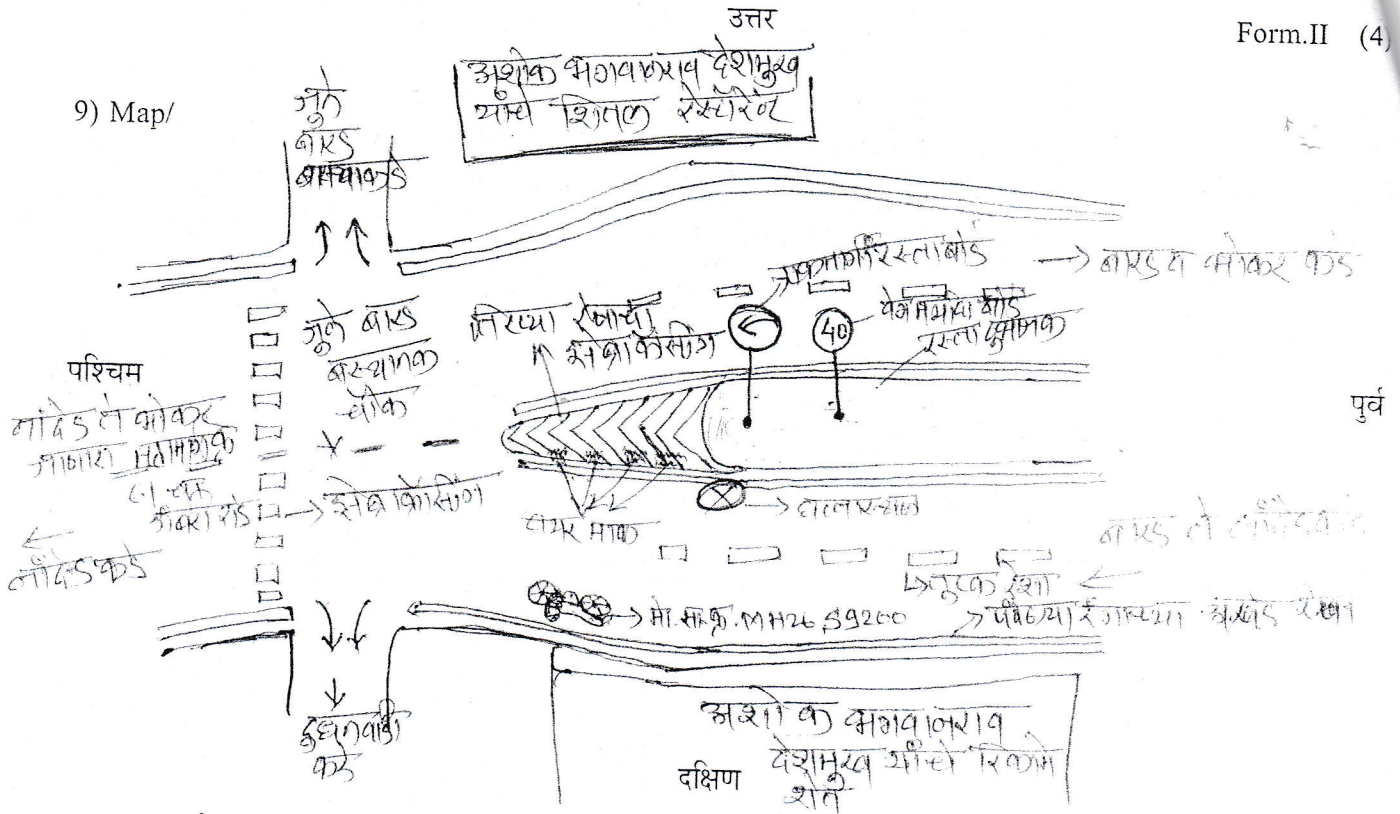 उत्तर
Form.II (4)
9) Map/
अशोक भगवानराव देशमुख
यांचे शितल रेस्टॉरेंट
जुने
बारड
बसस्थाकडे
एकमार्गी रस्ता बोर्ड
→ बारड व भोकर कडे
जुने बारड
बस्थानक
चौक
तिरप्या रेषाचा
झेब्रा क्रॉसिंग
40
वेगमर्यादा बोर्ड
रस्ता दुभाजक
पश्चिम
पुर्व
नांदेड ते भोकर
जाणारा
रोड
→ झेब्रा क्रॉसिंग
← नांदेड कडे
टायर मार्क
→ घटनास्थळ
बारड ते नांदेड कडे
तुटक रेषा
→ मो.सा.क्र.MH26,S9200
→ पांढऱ्या रंगाच्या अखंड रेषा
दुधनवाडी
कडे
अशोक भगवानराव
देशमुख यांचे रिकामे
शेत
दक्षिण